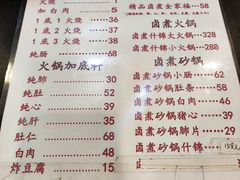 火烧
加白肉
1底1火烧 32
1底2火烧 38
1底3火烧 39
纯肠 68
火锅加底料
纯肺 30
纯肚 52
纯心 39
纯肝 35
肚仁 50
白肉 48
炸豆腐 15
精品卤煮全家福 58
卤煮火锅
卤煮什锦大火锅 328
卤煮什锦小火锅 188
卤煮砂锅
卤煮砂锅小肠 62
卤煮砂锅肚条 58
卤煮砂锅白肉 46
卤煮砂锅猪心 39
卤煮砂锅肺片 29
卤煮砂锅什锦